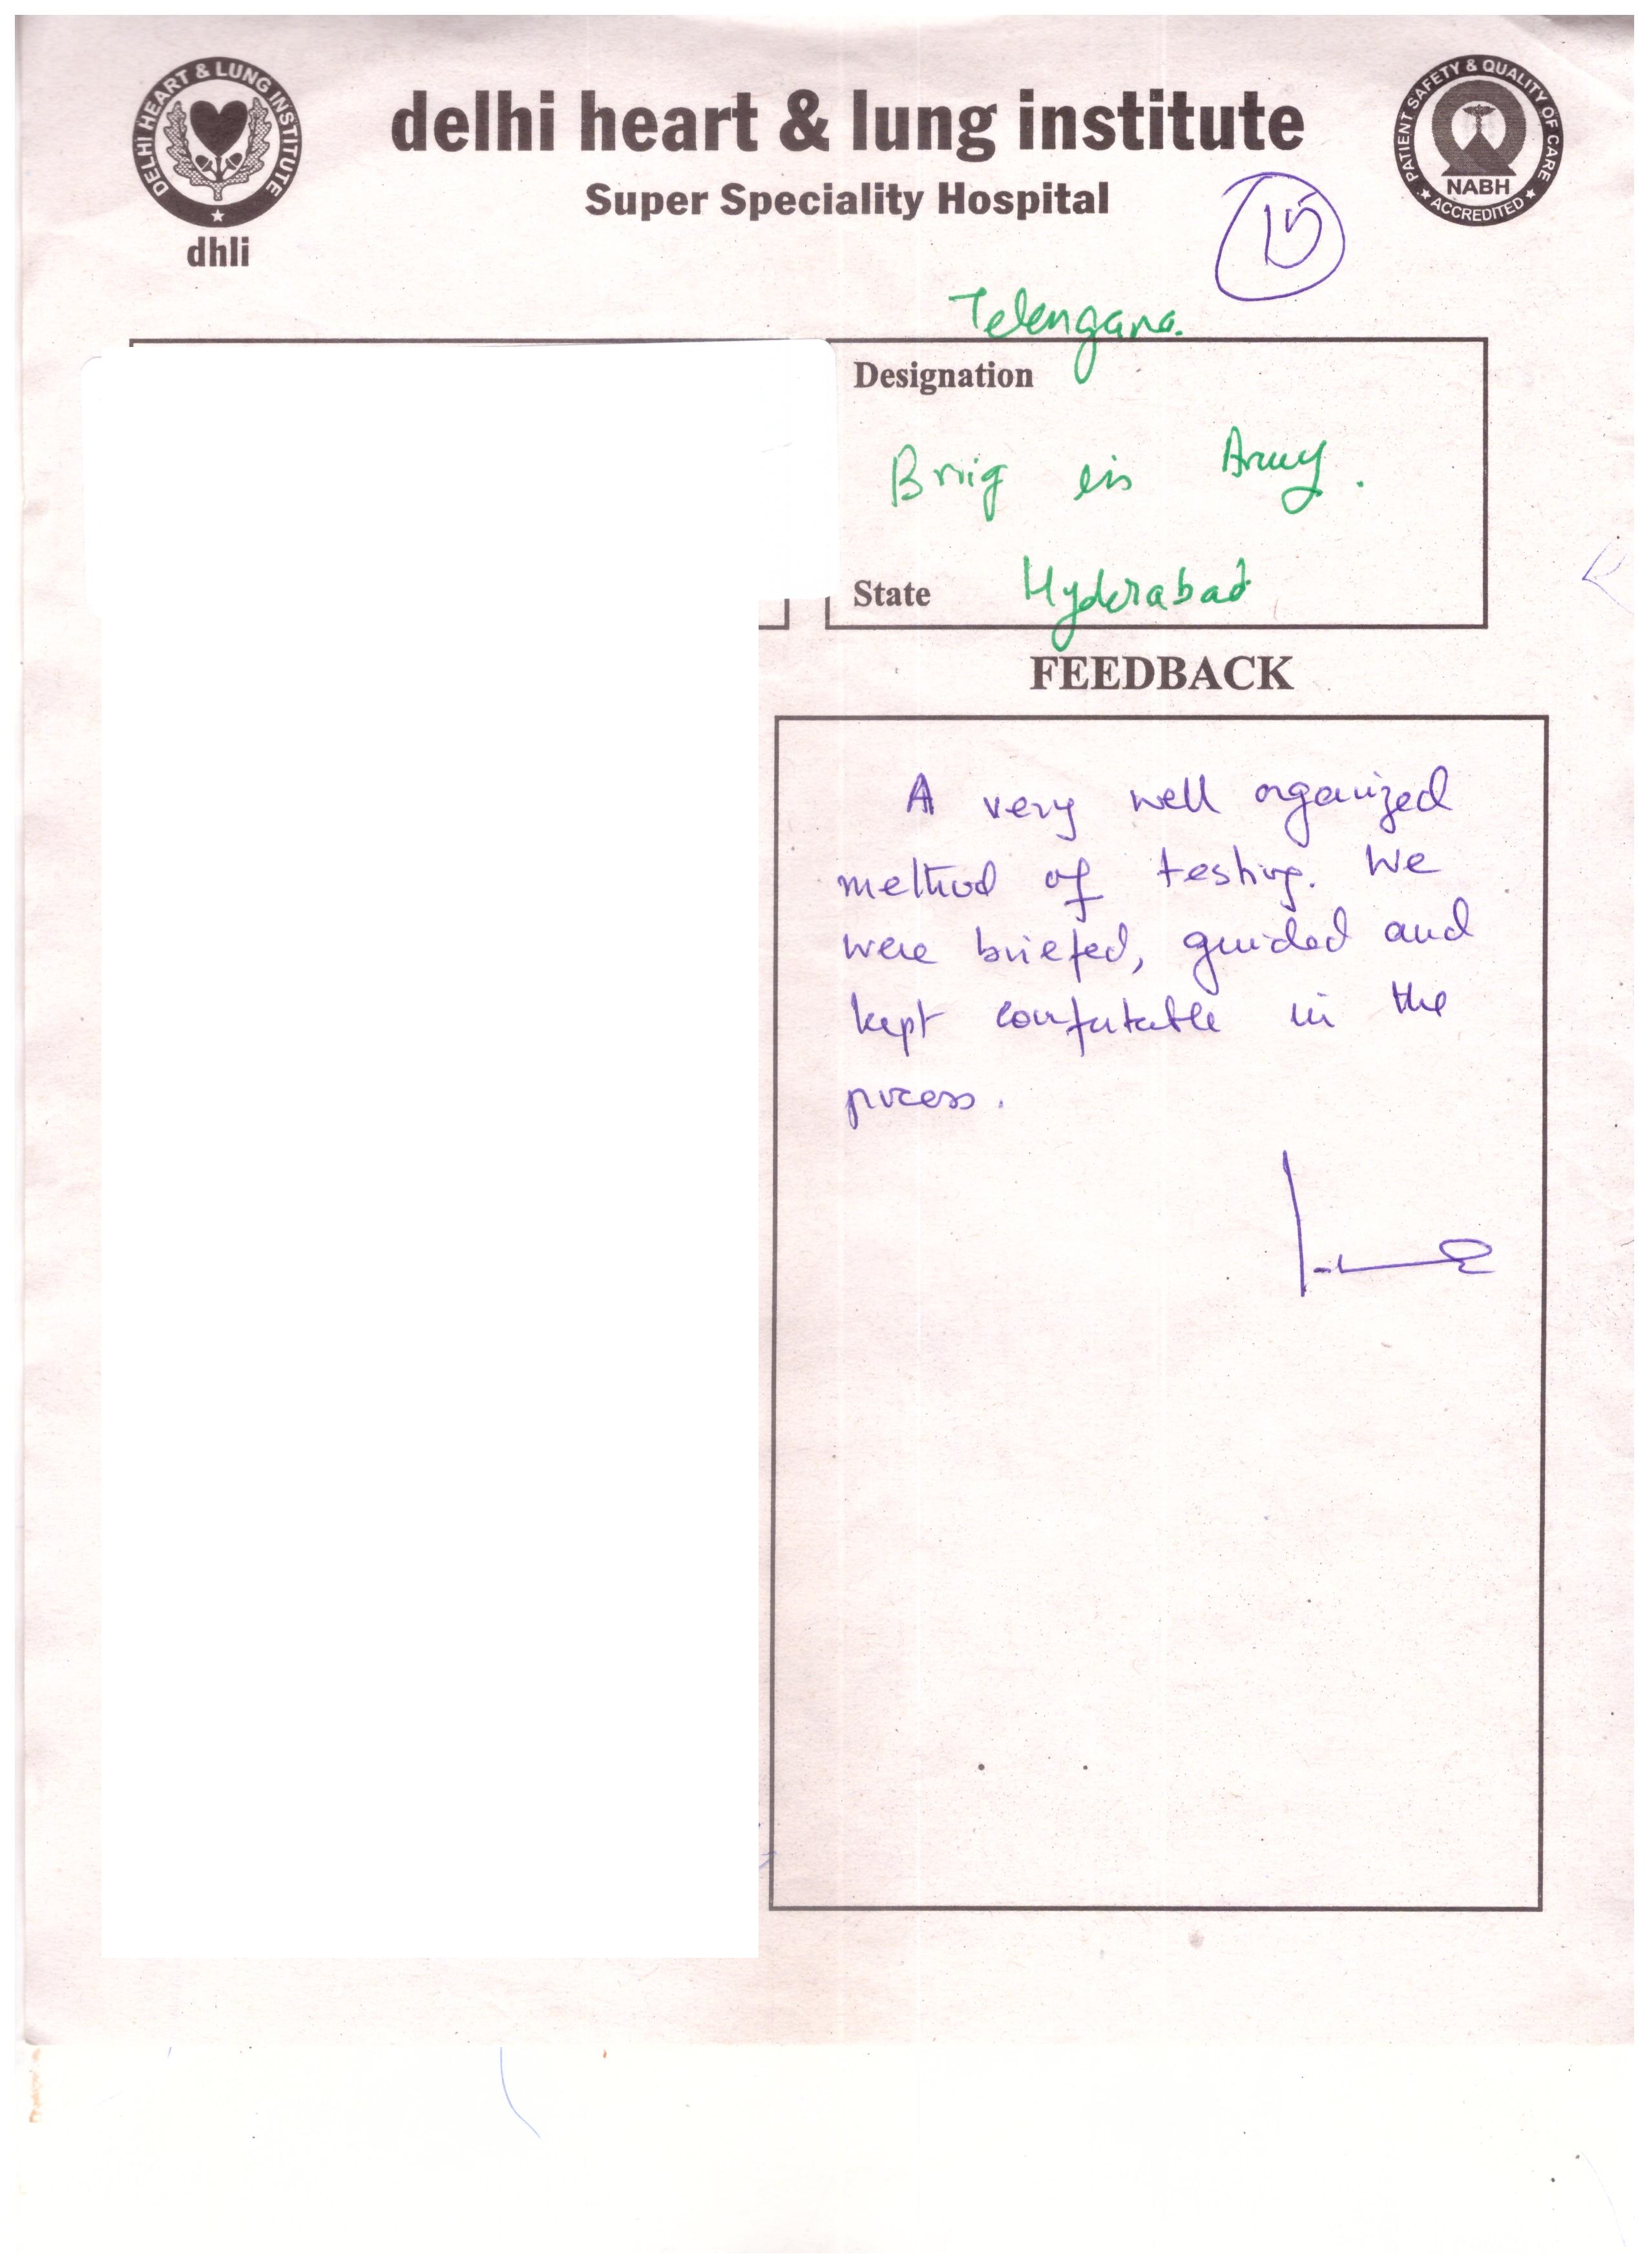 DELHI HEART & LUNG INSTITUTE
dhli
delhi heart & lung institute
Super Speciality Hospital
PATIENT SAFETY & QUALITY OF CARE
NABH
ACCREDITED
15
Telengana.
Designation
Brig in Army.
State Hyderabad
FEEDBACK
A very well organized
method of testing. We
were briefed, guided and
kept comfortable in the
process.